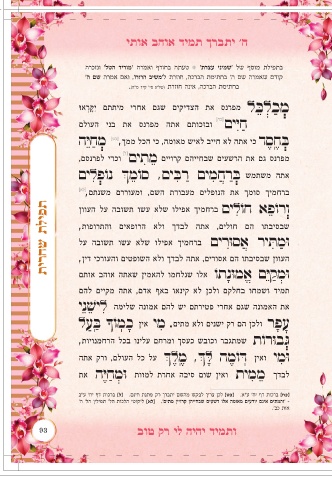 ה' יתברך תמיד אוהב אותי
בתפילת מוסף של "שמיני עצרת"
קודם שאמרה שם ה' בחתימת הברכה, חוזרת ל"משיב הרוח", ואם אמרה שם ה'
בחתימת הברכה, אינה חוזרת
מְכַלְכֵּל מפרנס את הצדיקים שגם אחרי מיתתם יקראו
חַיִּים ובזכותם אתה מפרנס את בני העולם
בְּחֶסֶד כי אתה לא חייב לאיש מאומה, כי הכל ממך, מְחַיֵּה
מפרנס גם את הרשעים שבחייהם קרויים מֵתִים וכדי לפרנסם,
אתה משתמש בְּרַחֲמִים רַבִּים, סוֹמֵךְ נוֹפְלִים
ברחמיך סומך את הנופלים מעבודת השם, ומעוררם משנתם,
וְרוֹפֵא חוֹלִים ברחמיך אפילו שלא עשו תשובה על העוון
שבסיבתו הם חולים, אתה לבדך ולא הרופאים והתרופות,
וּמַתִּיר אֲסוּרִים ברחמיך אפילו שלא עשו תשובה על
העוון שבסיבתו הם אסורים, אתה לבדך ולא השופטים והעורכי דין,
וּמְקַיֵּם אֱמוּנָתוֹ אלו שנלחמו להאמין שאתה אוהב אותם
תמיד ושמחו בחלקם ולכן לא קינאו באף אדם, אתה מקיים להם
את האמונה שגם אחרי פטירתם יש להם אמונה שלימה לִישֵׁנֵי
עָפָר ולכן הם רק ישנים ולא מתים, מִי אין כָמוֹךָ בַּעַל
גְּבוּרוֹת שמתגבר וכובש כעסך ומרחם עלינו בכל הרחמנויות,
וּמִי ואין דוֹמֶה לָּךְ, מֶלֶךְ על כל העולם, ורק אתה
לבדך מֵמִית ואין שום סיבה אחרת למוות וּמְחַיֶּה את
ותמיד יהיה לי רק טוב
תפילת שחרית
93